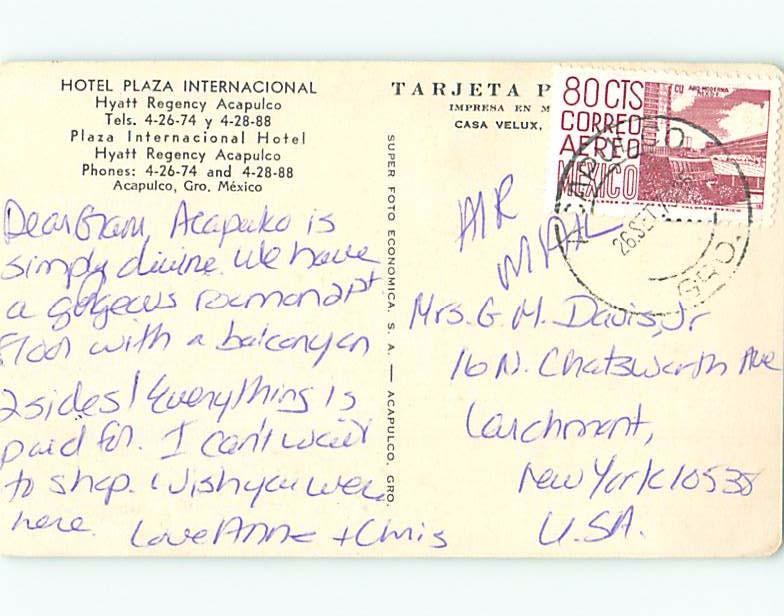 HOTEL PLAZA INTERNACIONAL
Hyatt Regency Acapulco
Tels. 4-26-74 y 4-28-88
Plaza Internacional Hotel
Hyatt Regency Acapulco
Phones: 4-26-74 and 4-28-88
Acapulco, Gro. México
Dear Gram, Acapulco is
simply divine. We have
a gogeous room on
floor with a balcony on
2 sides! Everything is
paid for. I can't wait
to shop. Wish you were
here.
Love Anne + Chris
SUPER FOTO ECONOMICA, S. A. — ACAPULCO, GRO.
TARJETA P
IMPRESA EN M
CASA VELUX,
80 CTS
CORREO
AEREO
MEXICO
CU ARQ. MODERNA
MEXICO
ACAPULCO
26 SET
AIR
MAIL
Mrs. G. M. Davis, Jr
16 N. Chatsworth Ave
Larchmont,
New York 10538
U.S.A.